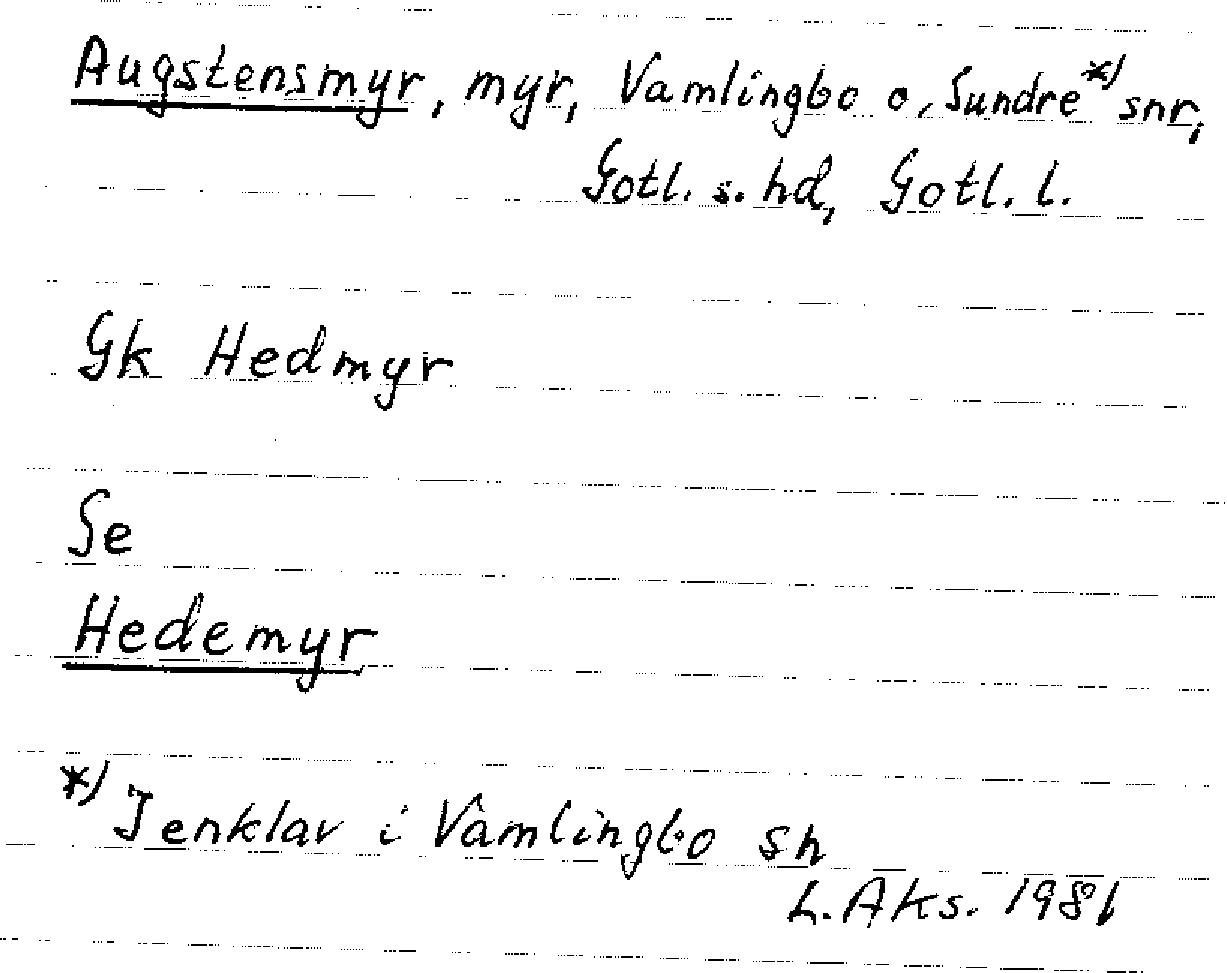 Augstensmyr, myr, Vamlingbo o. Sundre*) snr,
Gotl. s. hd, Gotl. l.
Gk Hedmyr
Se
Hedemyr
*) I enklav i Vamlingbo sn
L. Aks. 1981